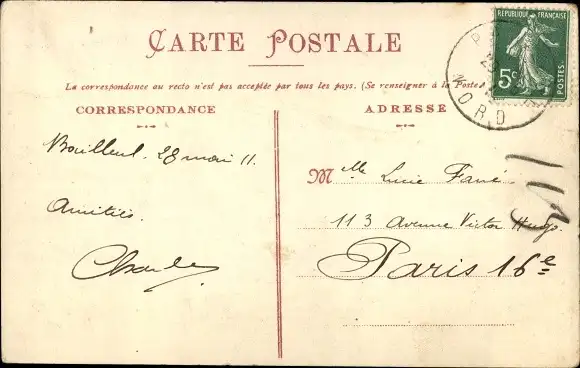 CARTE POSTALE
La correspondance au recto n'est pas acceptée par tous les pays. (Se renseigner à la Poste)
CORRESPONDANCE
ADRESSE
REPUBLIQUE FRANÇAISE
5c
POSTES
NORD
Bailleul. 28 mai 11.
Amitiés.
Charles
Mlle Lucie Fané
113 Avenue Victor Hugo.
Paris 16e